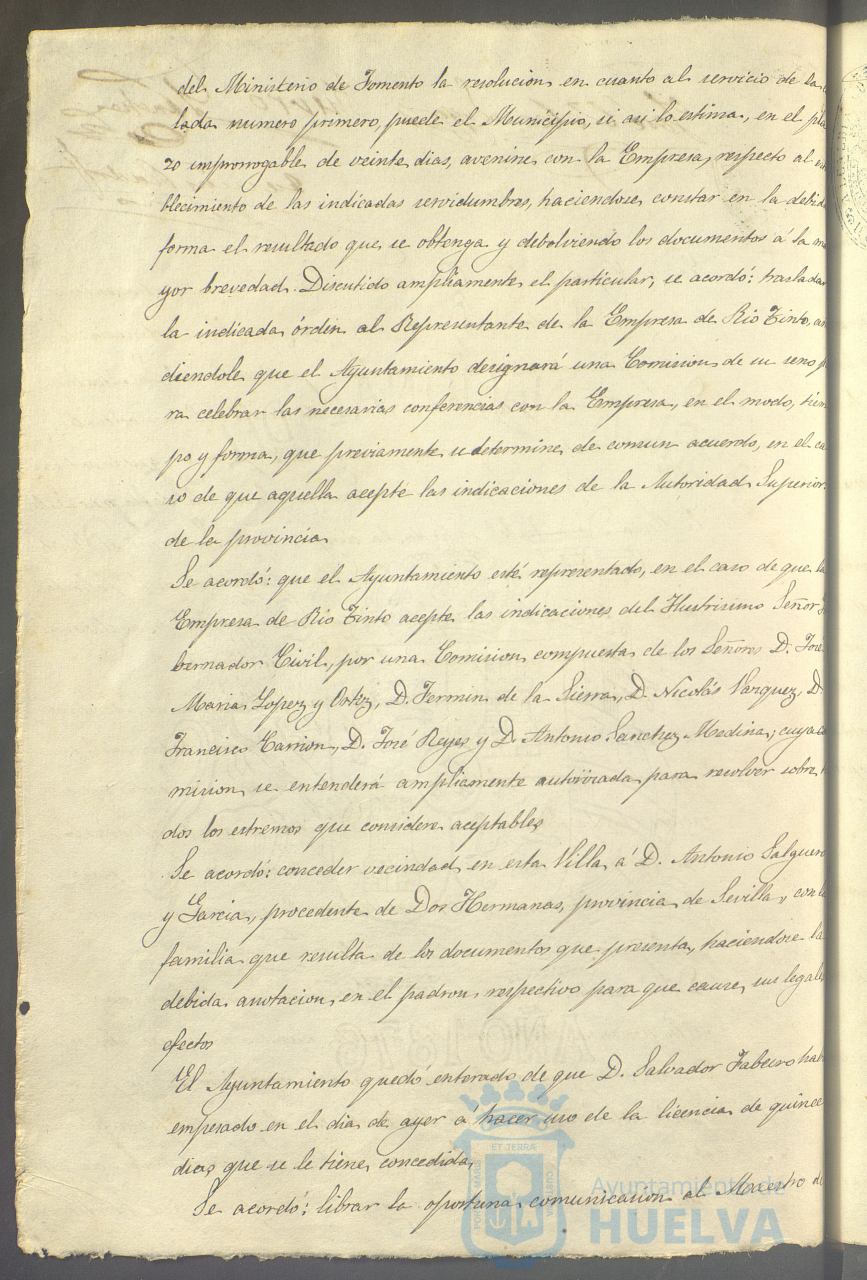 del Ministerio de Fomento la resolucion en cuanto al servicio de la
lada numero primero, puede el Municipio, si asi lo estima, en el pla
zo improrrogable de veinte dias, avenirse con la Empresa, respecto al
blecimiento de las indicadas servidumbres, haciendose constar en la debid
forma el resultado que se obtenga y debolviendo los documentos á la ma
yor brevedad. Discutido ampliamente el particular, se acordó: trasladar
la indicada órden al Representante de la Empresa de Rio Tinto, aña
diendole que el Ayuntamiento designará una Comision de su seno p
ra celebrar las necesarias conferencias con la Empresa, en el modo, tiem
po y forma, que previamente se determine de comun acuerdo, en el ca
so de que aquella acepte las indicaciones de la Autoridad Superior
de la provincia
Se acordó: que el Ayuntamiento esté representado, en el caso de que la
Empresa de Rio Tinto acepte las indicaciones del Ilustrisimo Señor
bernador Civil, por una Comision compuesta de los Señores D. José
Maria Lopez y Ortiz, D. Fermin de la Sierra, D. Nicolás Vazquez, D
Francisco Carrion, D. José Reyes y D. Antonio Sanchez Medina; cuya co
mision se entenderá ampliamente autorizada para resolver sobre
dos los estremos que considere aceptables
Se acordó: conceder vecindad en esta Villa á D. Antonio Salguero
y Garcia, procedente de Dos Hermanas, provincia de Sevilla, con la
familia que resulta de los documentos que presenta, haciendose la
debida anotacion en el padron respectivo para que cause sus legales
efectos
El Ayuntamiento quedó enterado de que D. Salvador Fabeiro habi
empesado en el dia de ayer á hacer uso de la licencia de quince
dias que se le tiene concedida
Se acordó: librar la oportuna comunicacion al Maestro de
Ayuntamiento de
HUELVA